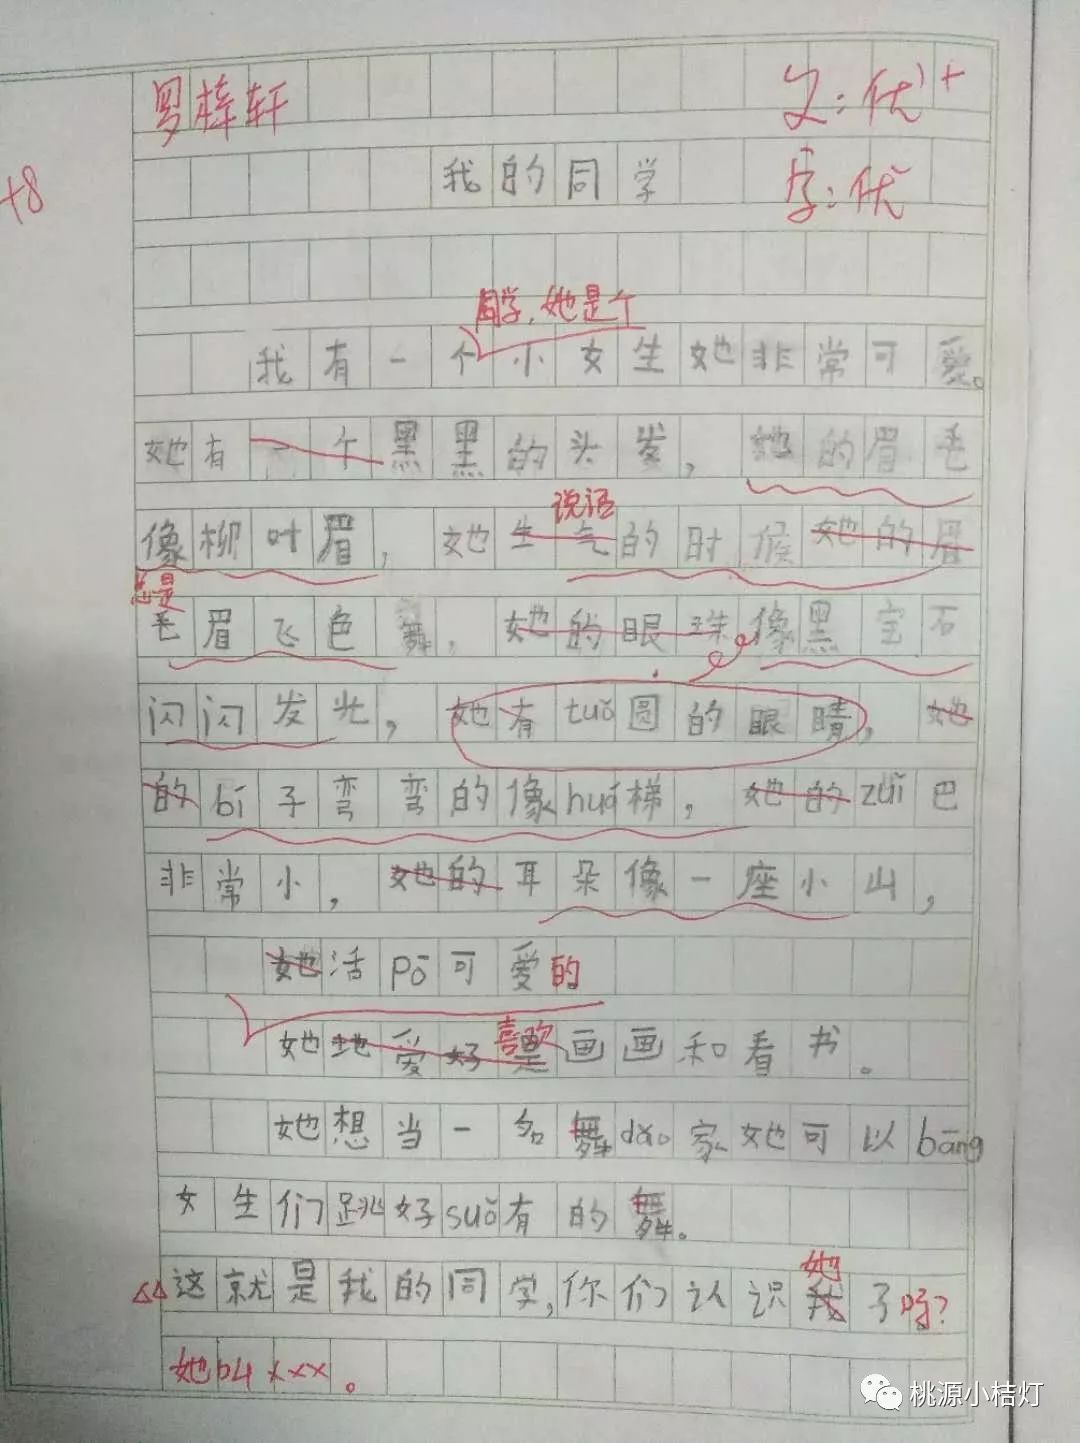 罗梓轩 文:优+
+8
我的同学 字:优
同学,她是个
我有一个小女生她非常可爱。
她有一个黑黑的头发,她的眉毛
说话
像柳叶眉,她生气的时候她的眉
总是
毛眉飞色舞,她的眼珠像黑宝石
闪闪发光,她有tuǒ圆的眼睛,她
的bí子弯弯的像huá梯,她的zuǐ巴
非常小,她的耳朵像一座小山,
她活pō可爱的
喜欢
她她爱好是画画和看书。
她想当一名舞dǎo家她可以bāng
女生们跳好suǒ有的舞。
她
这就是我的同学,你们认识我了吗?
她叫xxx。
桃源小桔灯